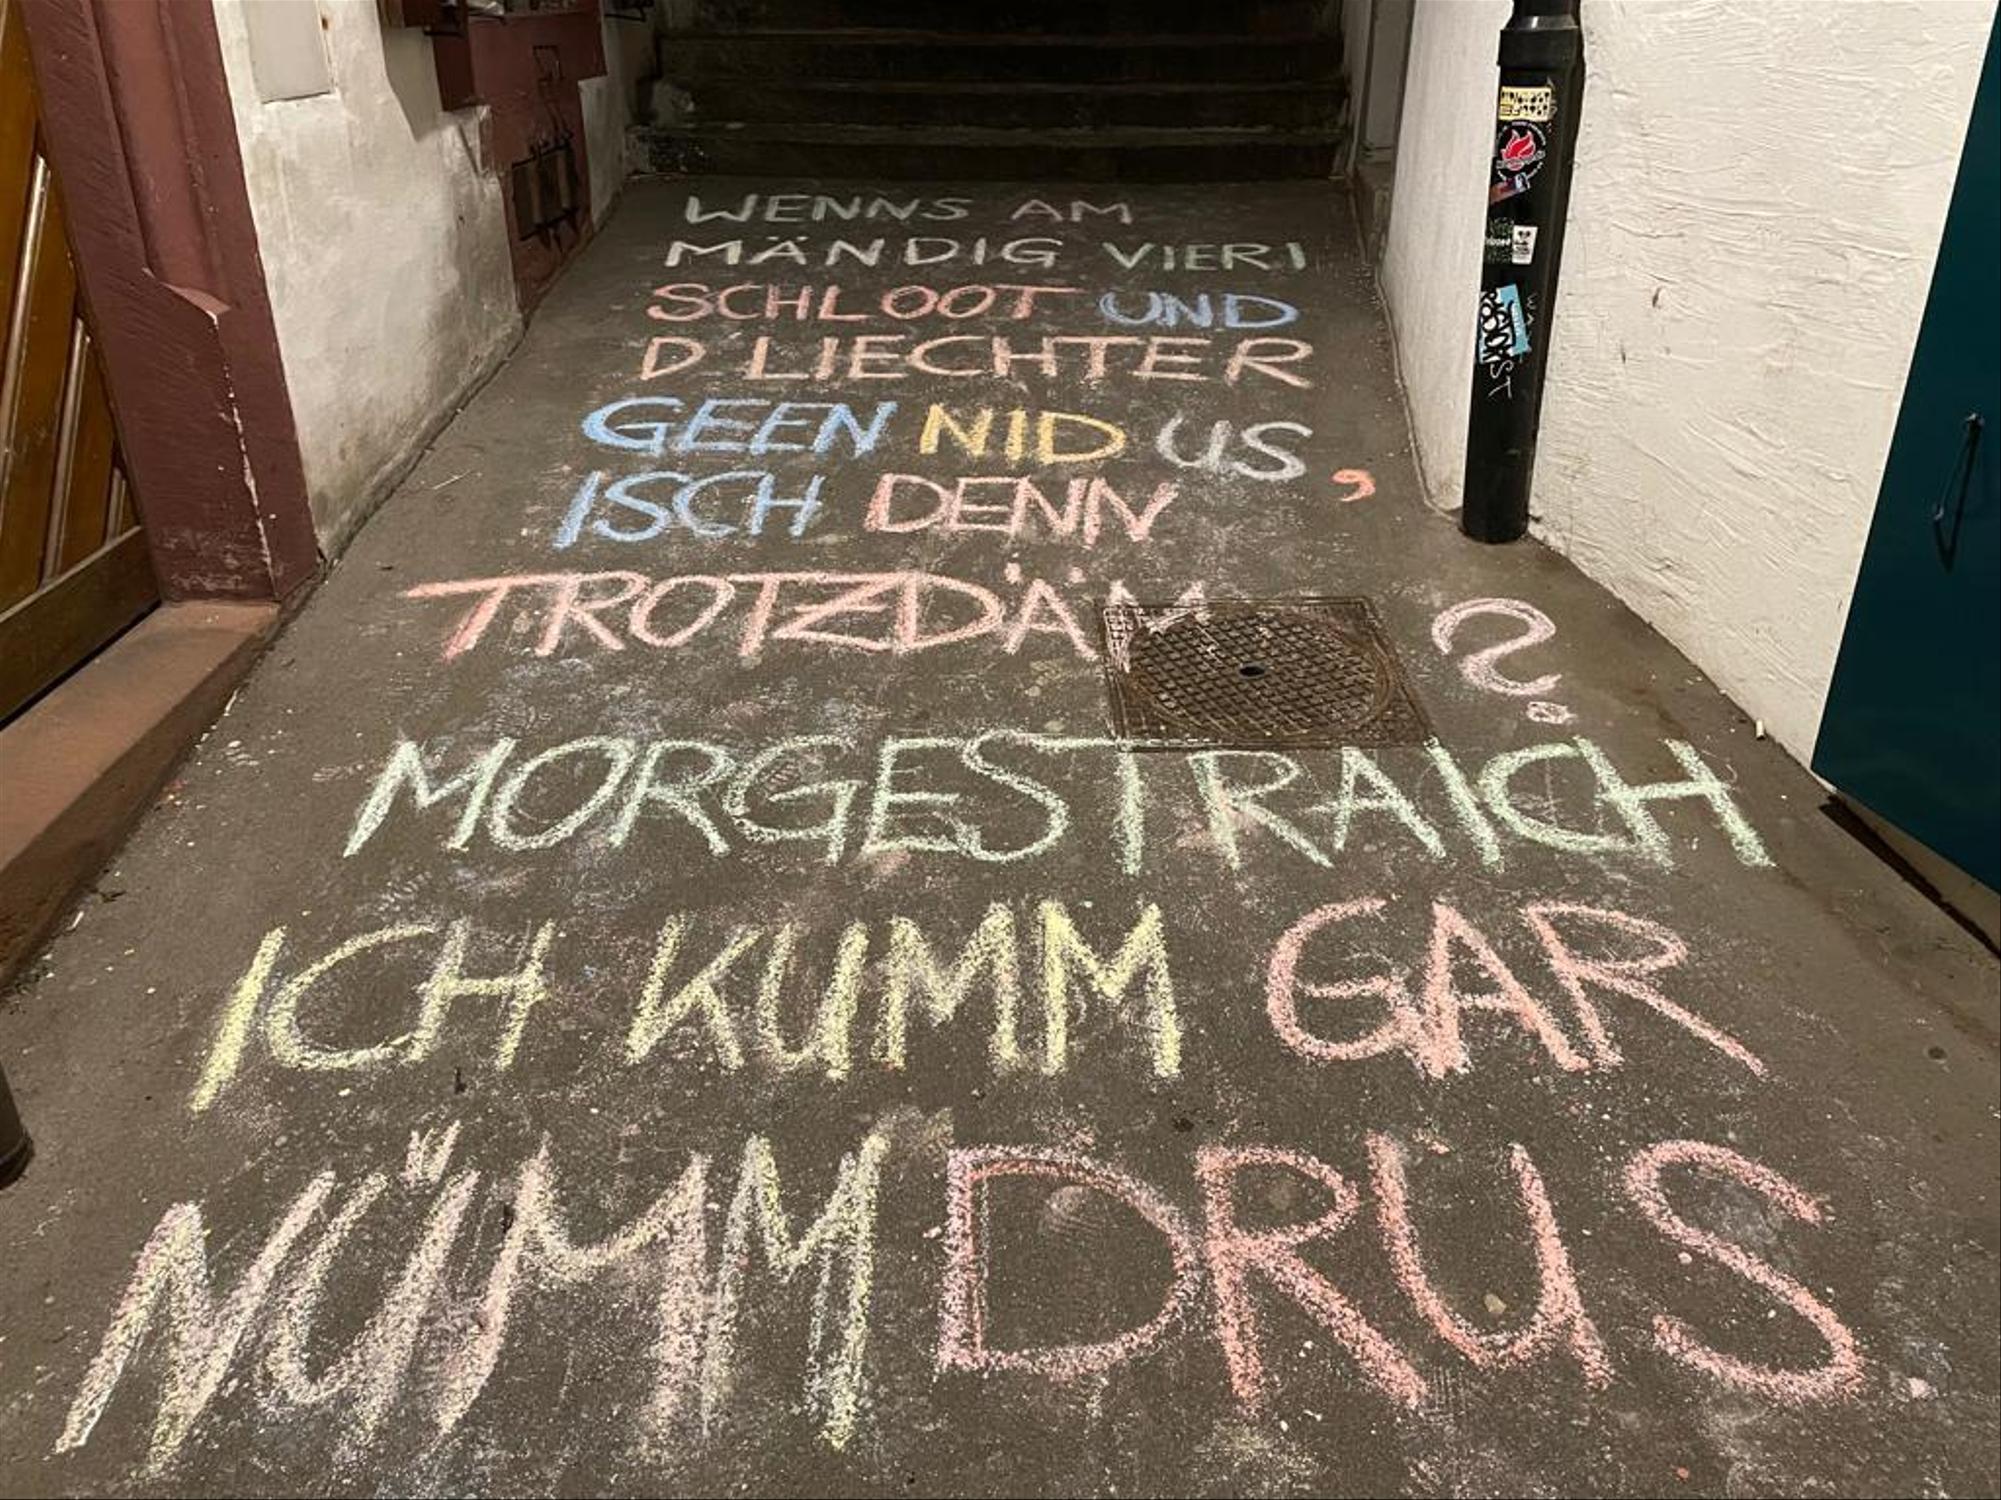 WENNS AM
MÄNDIG VIERI
SCHLOOT UND
D LIECHTER
GEEN NID US,
ISCH DENN
TROTZDÄM ?
MORGESTRAICH
ICH KUMM GAR
NÜMM DRUS